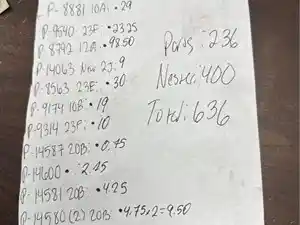 P- 8881 10A: • 29
P- 9540 23F: • 23.25
P- 8792 12A: • 98.50
P-14063 New 2J: 9
P-8563 23E: • 30
P- 9174 10B: • 19
P-9314 23F: • 10
P-14587 20B: • 0.75
P-14600 • 2.25
P-14581 20B: • 4.25
P-14580 (2) 20B: • 4.75x2=9.50
: 236
: 400
Total: 636